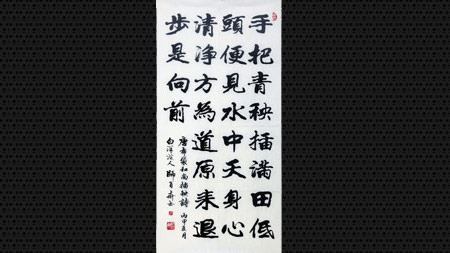 手把青秧插滿田低
頭便見水中天身心
清净方為道原来退
步是向前
唐布袋和尚插秧詩 丙申夏月
白洋淀人